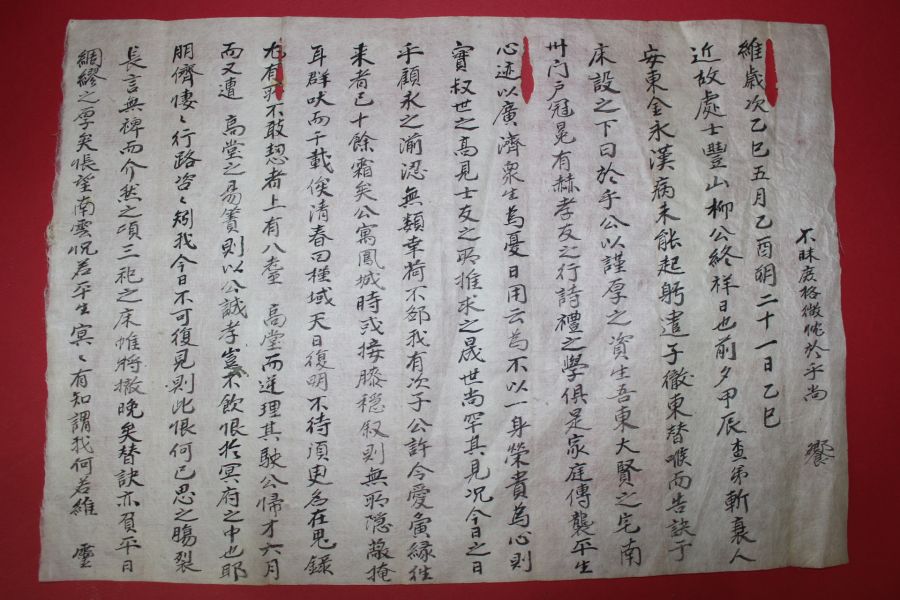 維歲次乙巳五月乙酉朔二十一日乙巳
近故處士豐山柳公終祥日也前夕甲辰査弟斬衰人
安東金永漢病未能起躬遣子徹東替喉而告訣于
床設之下曰於乎公以謹厚之資生吾東大賢之宅南
州门戶冠冕有赫孝友之行詩禮之學俱是家庭傳襲平生
心迹以廣濟衆生爲憂日用云爲不以一身榮貴爲心則
實叔世之高見士友之所推求之晟世尙罕其見况今日之日
乎顧永之湔涊無類幸荷不鄙我有次子公許令愛寅緣徃
来者已十餘霜矣公寓鳳城時或接膝穩叙則無所隱蔽掩
耳群吠而千載俟清春回槿域天日復明不待須臾在鬼錄
尤有所不敢恝者上有八耋 高堂而逆理其駛公帰才六月
而又遭 高堂之易簀則以公誠孝豈不飮恨於冥府之中也耶
朋儕悽〻行路咨〻矧我今日不可復見則此恨何已思之膓裂
長言無裨而介然之頃三祀之床帷將撤晩矣替訣亦負平日
綢繆之厚矣悵望南雲怳若平生冥〻有知謂我何若維 靈
不昧庶格微忱於乎尙 饗